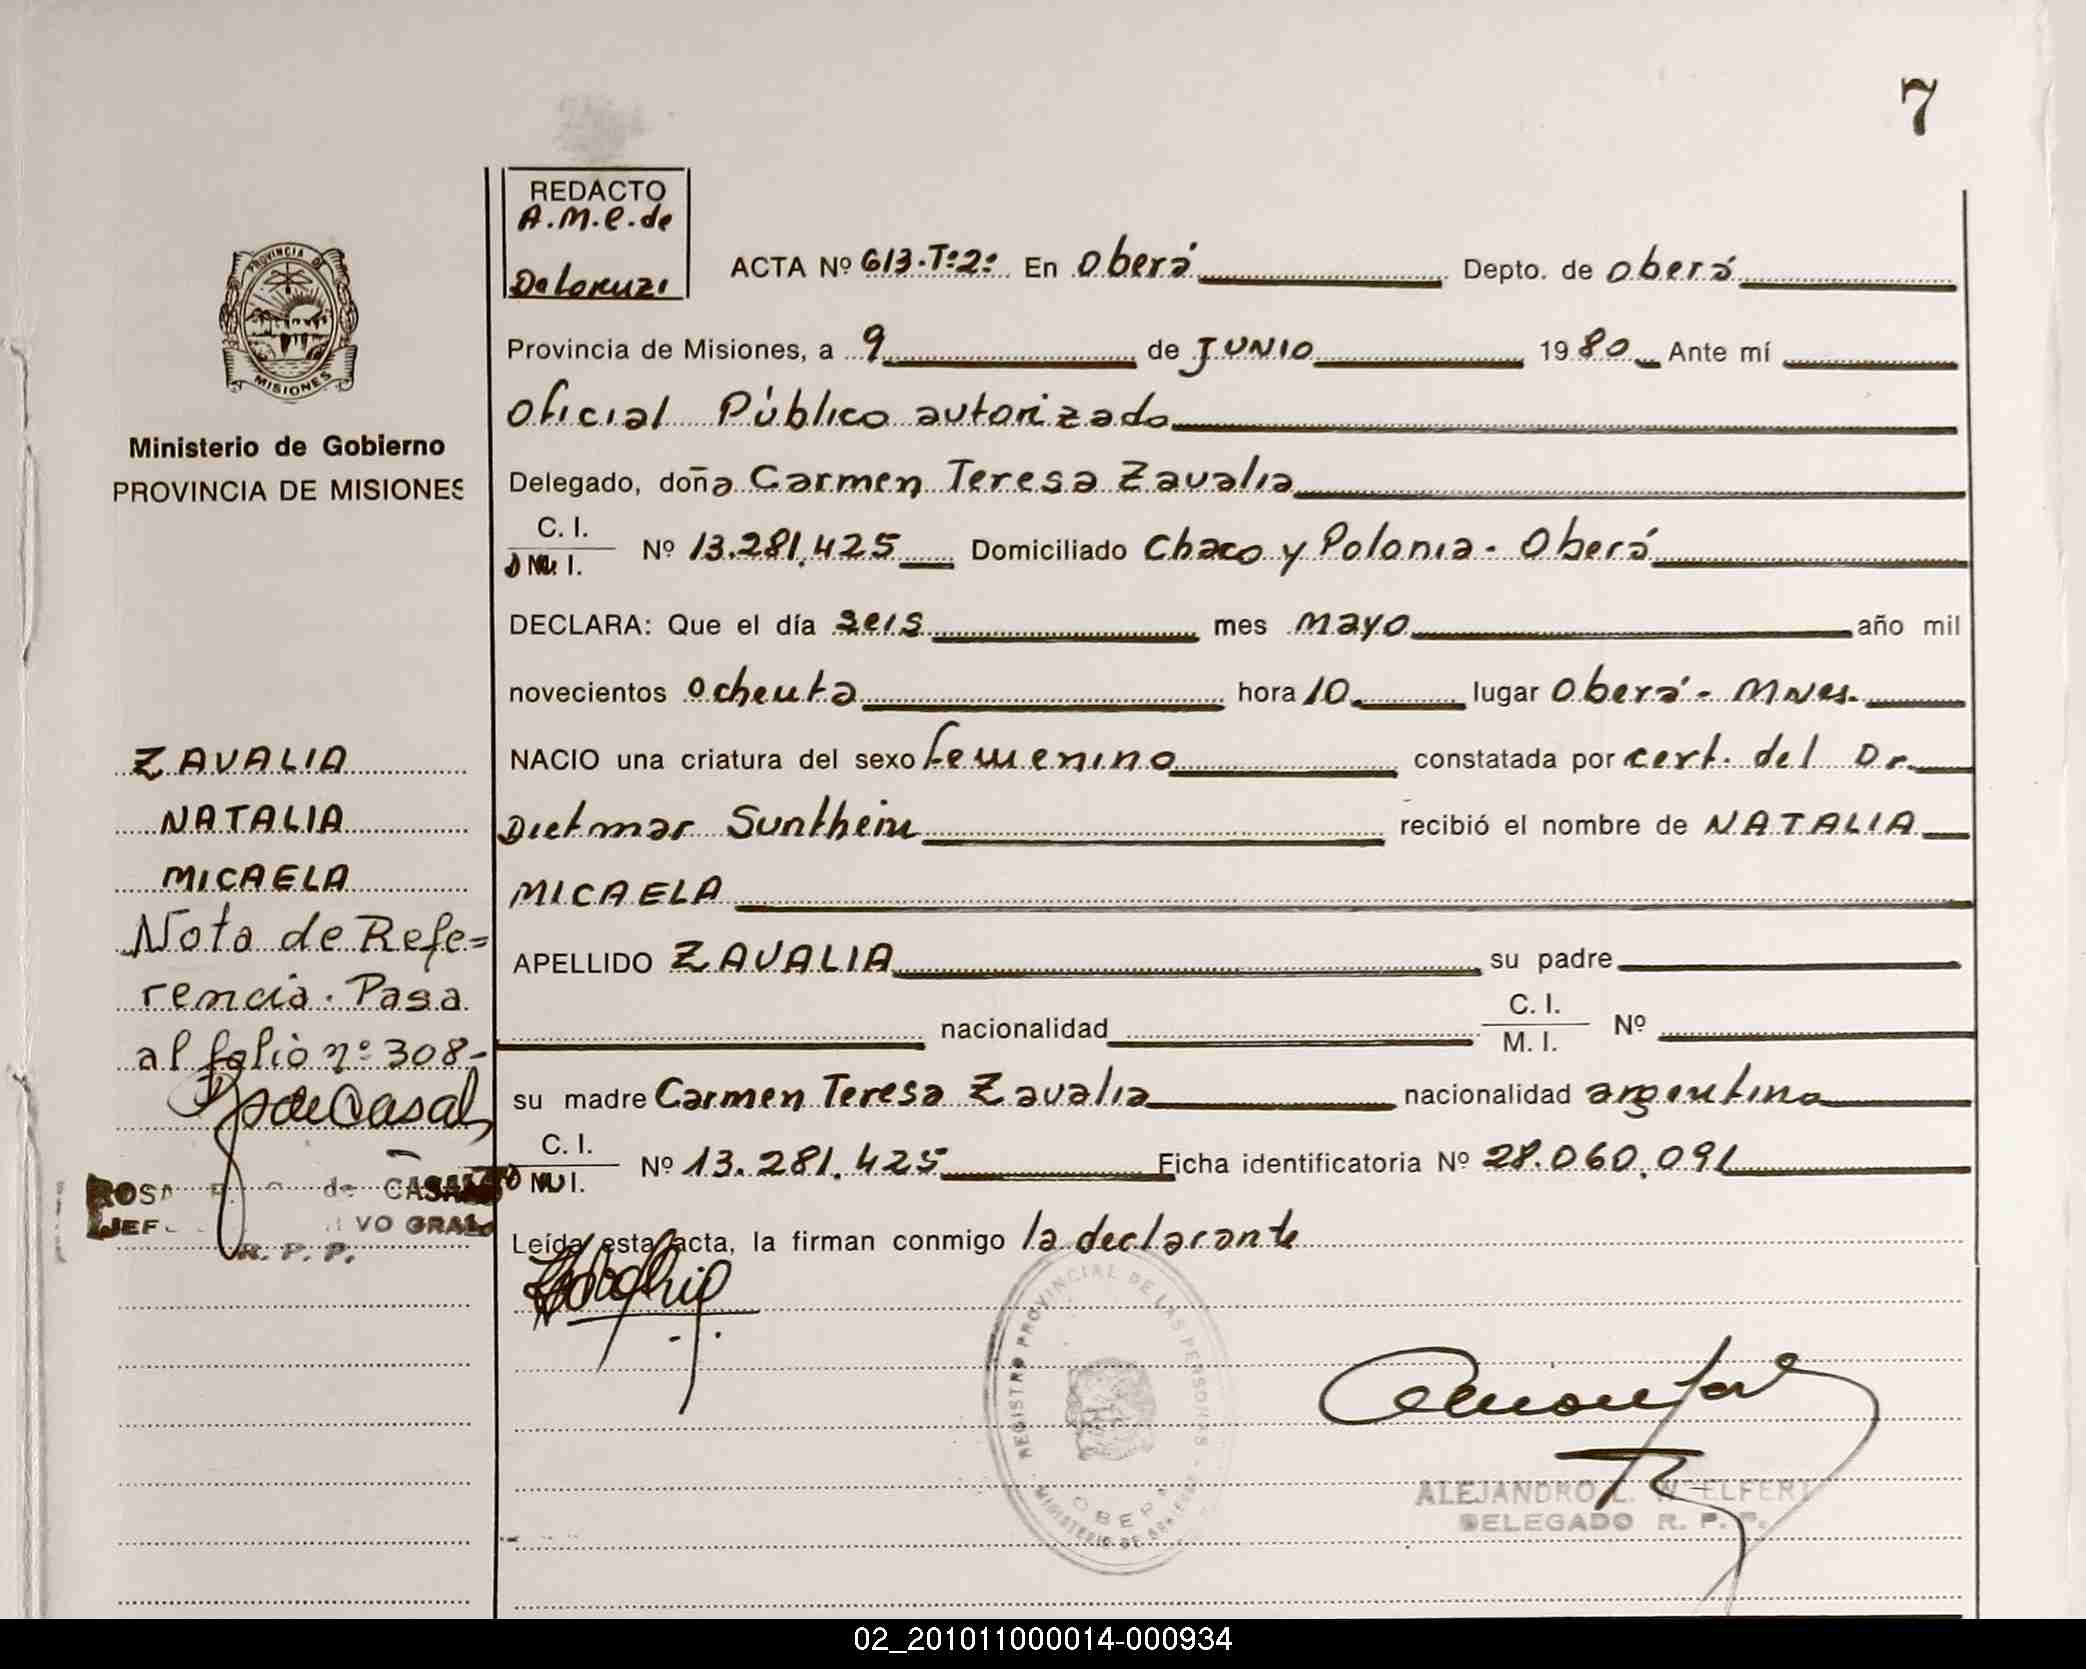 7
REDACTO
A.M.E. de
ACTA Nº 613.Tº2º En Oberá Depto. de Oberá
PROVINCIA DE
MISIONES
Provincia de Misiones, a 9 de JUNIO 1980 Ante mí
Oficial Público autorizado
Ministerio de Gobierno
PROVINCIA DE MISIONES
Delegado, doña Carmen Teresa Zavalia
C. I.
D N I. Nº 13.281.425 Domiciliado Chaco y Polonia - Oberá
DECLARA: Que el día seis mes mayo año mil
novecientos ochenta hora 10 lugar Oberá - Mnes.
NACIO una criatura del sexo femenino constatada por cert. del Dr.
Dietmar Sunthein recibió el nombre de NATALIA
MICAELA
APELLIDO ZAVALIA su padre
nacionalidad C. I.
M. I. Nº
su madre Carmen Teresa Zavalia nacionalidad argentina
C. I.
D N I. Nº 13.281.425 Ficha identificatoria Nº 28.060.091
Leída esta acta, la firman conmigo la declarante
ZAVALIA
NATALIA
MICAELA
Nota de Refe=
rencia. Pasa
al folio nº 308-
ROSA de
R. P. P.
REGISTRO PROVINCIAL DE LAS PERSONAS
OBERA
ALEJANDRO L.
DELEGADO R. P. P.
02_201011000014-000934